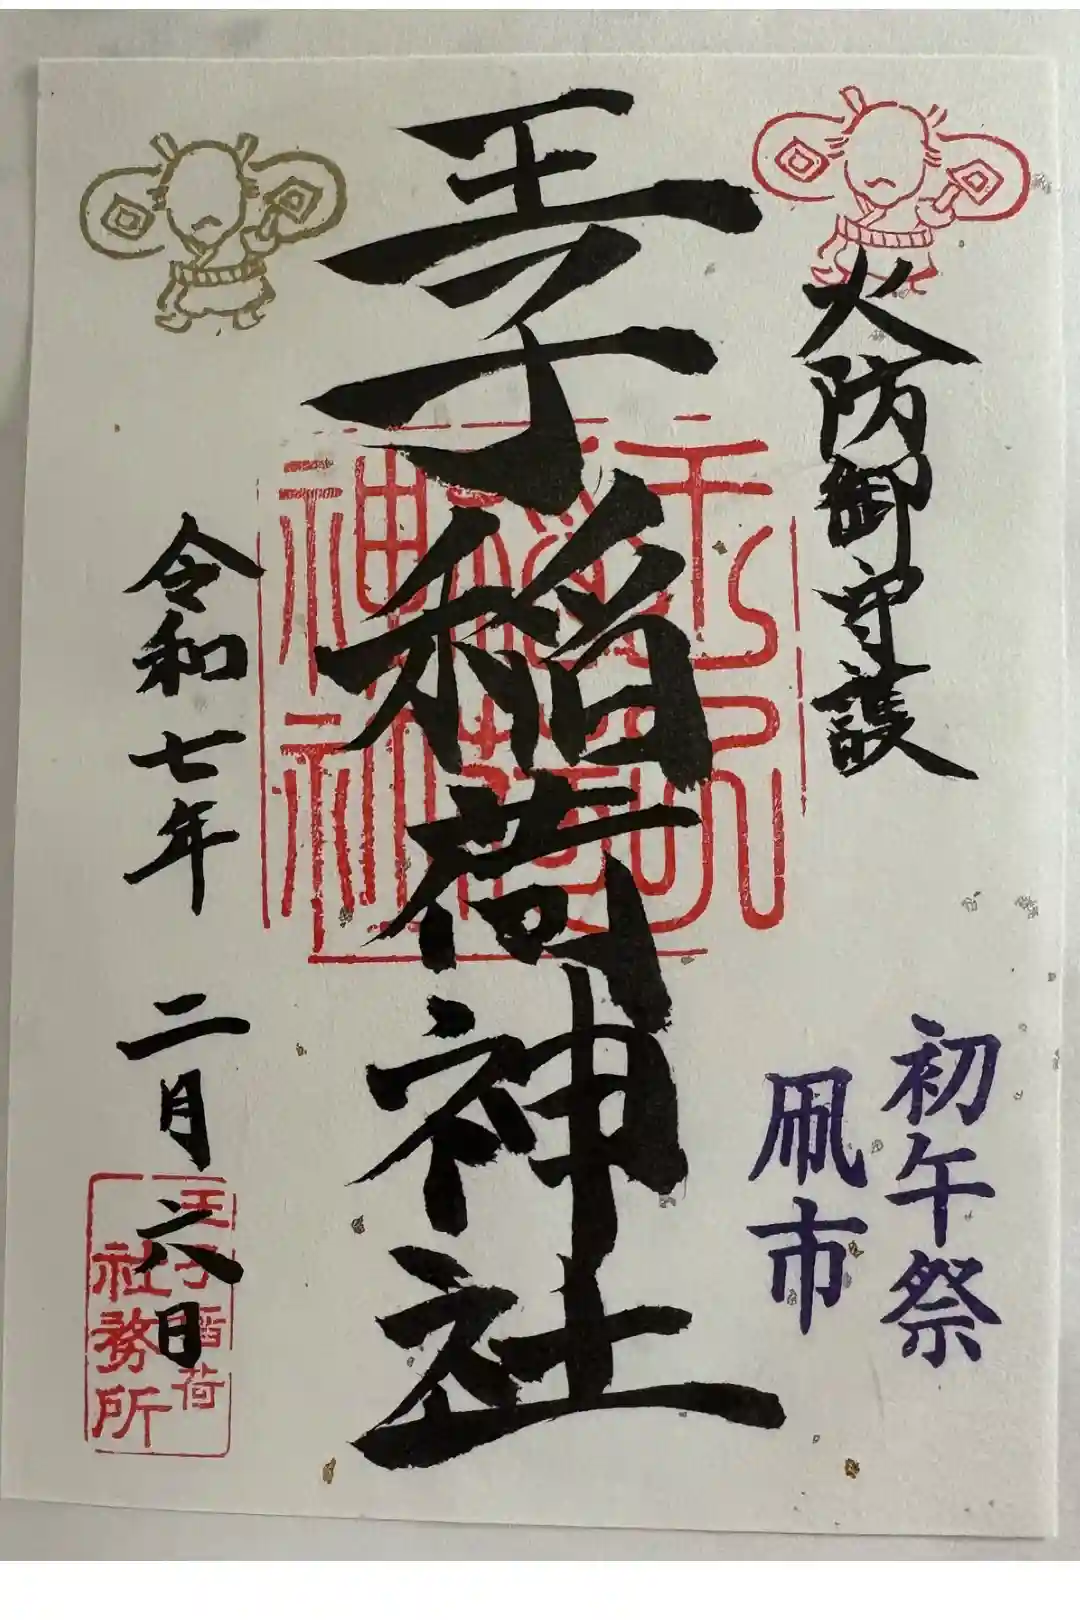 火防御守護
初午祭
凧市
王子稲荷神社
令和七年 二月 六日
王子稲荷
社務所